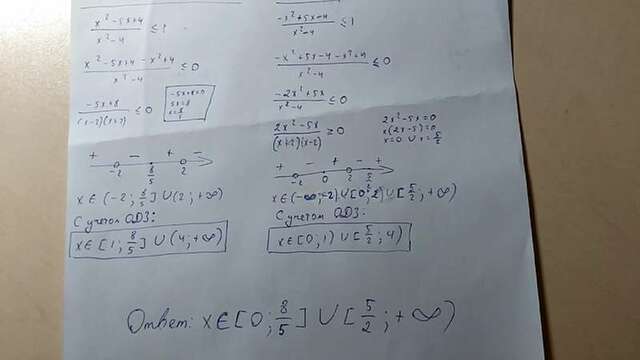 x²-5x+4 / x²-4 ≤ 1
x²-5x+4-x²+4 / x²-4 ≤ 0
-5x+8 / (x-2)(x+2) ≤ 0
-5x+8=0
5x=8
x=8/5
+ - + -
-2 8/5 2
x∈(-2; 8/5] ∪ (2; +∞)
С учетом ОДЗ:
x∈[1; 8/5] ∪ (4; +∞)
-x²+5x-4 / x²-4 ≤ 1
-x²+5x-4-x²+4 / x²-4 ≤ 0
-2x²+5x / x²-4 ≤ 0
2x²-5x / (x+2)(x-2) ≥ 0
2x²-5x=0
x(2x-5)=0
x=0 ∪ x=5/2
+ - + - +
-2 0 2 5/2
x∈(-∞;-2) ∪ [0; 2) ∪ [5/2; +∞)
С учетом ОДЗ:
x∈[0; 1) ∪ [5/2; 4)
Ответ: x∈[0; 8/5] ∪ [5/2; +∞)